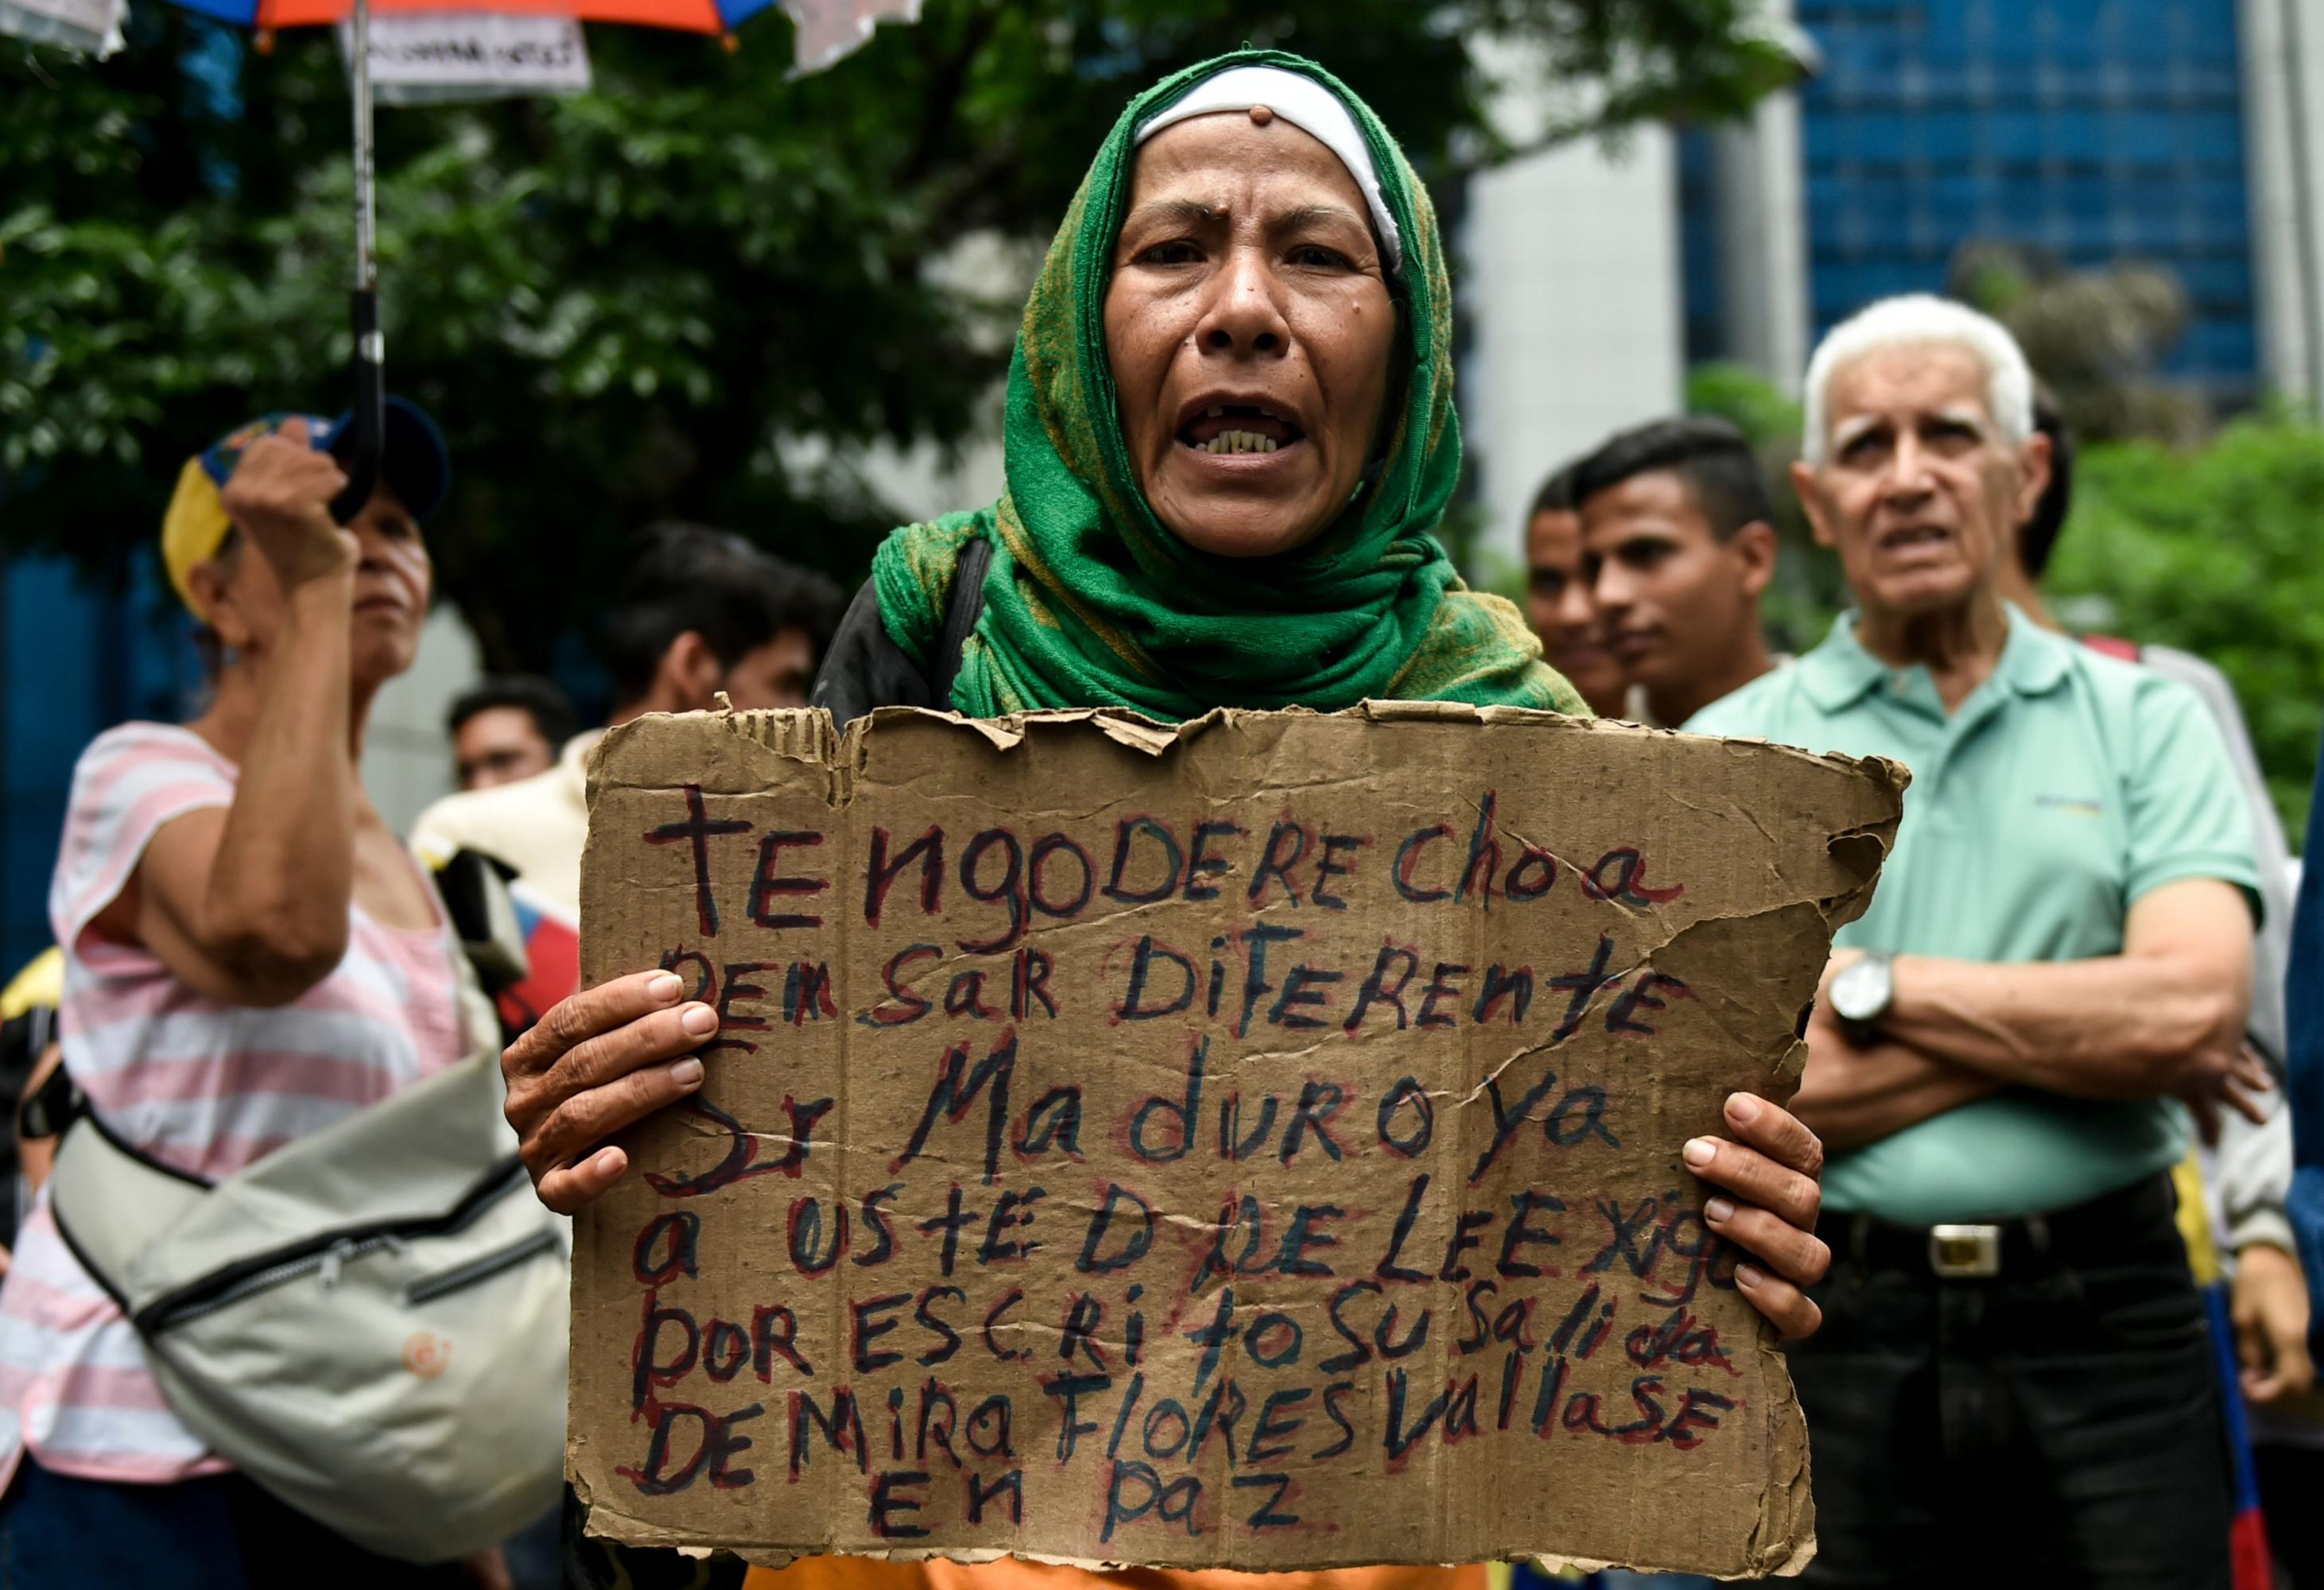 tEngo DERECho a
PEN SaR DiFERENtE
Sr MaduRo ya
a UStED DE LE EXigo
poR ESCRito Su Salida
DE MiRaFloRES VallaSE
En paz